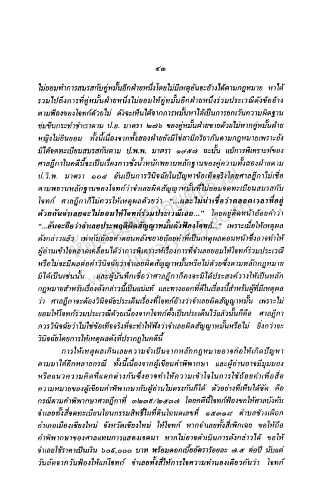 ๔๓
ไม่ยอมทำการสมรสกับคู่หมั้นอีกฝ่ายหนึ่งโดยไม่มีเหตุอันจะอ้างได้ตามกฎหมาย หาได้
รวมไปถึงการที่คู่หมั้นฝ่ายหนึ่งไม่ยอมให้คู่หมั้นอีกฝ่ายหนึ่งร่วมประเวณีดังข้ออ้าง
ตามฟ้องของโจทก์ด้วยไม่ ดังจะเห็นได้จากการหมั้นหาได้เป็นการยกเว้นความผิดฐาน
ข่มขืนกระทำชำเราตาม ป.อ. มาตรา ๒๗๖ ของคู่หมั้นฝ่ายชายด้วยไม่หากคู่หมั้นฝ่าย
หญิงไม่ยินยอม ทั้งนี้เนื่องจากทั้งสองฝ่ายยังมิใช่สามีภริยากันตามกฎหมายเพราะยัง
มิได้จดทะเบียนสมรสกันตาม ป.พ.พ. มาตรา ๑๔๕๗ ฉะนั้น แม้การพิเคราะห์ของ
ศาลฎีกาในคดีนี้จะเป็นเรื่องการชั่งน้ำหนักพยานหลักฐานของคู่ความทั้งสองฝ่ายตาม
ป.วิ.พ. มาตรา ๑๐๔ อันเป็นการวินิจฉัยในปัญหาข้อเท็จจริงโดยศาลฎีกาไม่เชื่อ
ตามพยานหลักฐานของโจทก์ว่าจำเลยผิดสัญญาหมั้นที่ไม่ยอมจดทะเบียนสมรสกับ
โจทก์ ศาลฎีกาก็ไม่ควรให้เหตุผลด้วยว่า "...และไม่น่าเชื่อว่าตลอดเวลาที่อยู่
ด้วยกันจำเลยจะไม่ยอมให้โจทก์ร่วมประเวณีเลย..." โดยอยู่ติดหน้าถ้อยคำว่า
"...อันจะถือว่าจำเลยประพฤติผิดสัญญาหมั้นดังฟ้องโจทก์..." เพราะเมื่อให้เหตุผล
ดังกล่าวแล้ว
ผู้อ่านเข้าใจคลาดเคลื่อนได้ว่าการพิเคราะห์เรื่องการที่จำเลยยอมให้โจทก์ร่วมประเวณี
หรือไม่จะมีผลต่อคำวินิจฉัยว่าจำเลยผิดสัญญาหมั้นหรือไม่ด้วยซึ่งตามหลักกฎหมาย
มิได้เป็นเช่นนั้น และผู้บันทึกเชื่อว่าศาลฎีกาก็คงจะมิได้ประสงค์วางให้เป็นหลัก
กฎหมายสำหรับเรื่องดังกล่าวนี้เป็นแน่แท้
ศาลฎีกาจะต้องวินิจฉัยประเด็นเรื่องที่โจทก์อ้างว่าจำเลยผิดสัญญาหมั้น เพราะไม่
ยอมให้โจทก์ร่วมประเวณีด้วยเนื่องจากโจทก์ตั้งเป็นประเด็นไว้แล้วนั้นก็คือ ศาลฎีกา
ควรวินิจฉัยว่าไม่ใช่ข้อเท็จจริงที่จะทำให้ฟังว่าจำเลยผิดสัญญาหมั้นหรือไม่ ยิ่งกว่าจะ
วินิจฉัยโดยการให้เหตุผลดังที่ปรากฏในคดีนี้
การให้เหตุผลเกินเลยความจำเป็นจากหลักกฎหมายอาจก่อให้เกิดปัญหา
ตามมาได้อีกหลายกรณี ทั้งนี้เนื่องจากผู้เขียนคำพิพากษา และผู้อ่านอาจมีมุมมอง
หรือแนวความคิดที่แตกต่างกันซึ่งอาจทำให้ความเข้าใจในการใช้ถ้อยคำเพื่อสื่อ
ความหมายของผู้เขียนคำพิพากษากับผู้อ่านไม่ตรงกันก็ได้ ตัวอย่างที่เห็นได้ชัด คือ
จำเลยทั้งสี่จดทะเบียนโอนกรรมสิทธิ์ในที่ดินโฉนดเลขที่ ๑๕๓๑๙ ตำบลช้างเผือก
อำเภอเมืองเชียงใหม่ จังหวัดเชียงใหม่ ให้โจทก์ หากจำเลยทั้งสี่เพิกเฉย ขอให้ถือ
คำพิพากษาของศาลแทนการแสดงเจตนา หากไม่อาจดำเนินการดังกล่าวได้ ขอให้
จำเลยใช้ราคาเป็นเงิน ๖๐๕,๐๐๐ บาท พร้อมดอกเบี้ยอัตราร้อยละ ๗.๕ ต่อปี นับแต่
วันถัดจากวันฟ้องให้แก่โจทก์ จำเลยทั้งสี่ให้การใจความทำนองเดียวกันว่า โจทก์